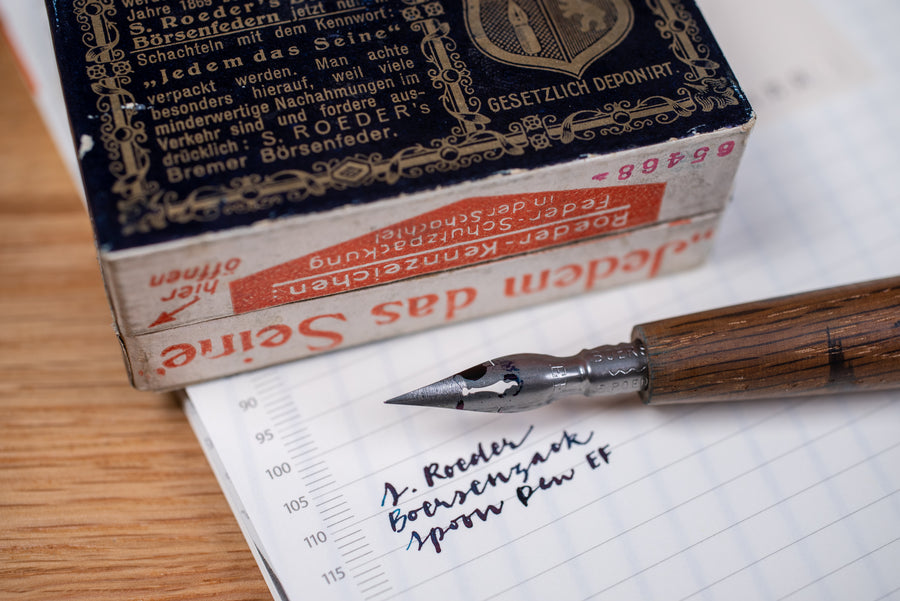 Jahre 1869
S. Roeder's
Börsenfedern jetzt nur
Schachteln mit dem Kennwort:
„Jedem das Seine“
verpackt werden. Man achte
besonders hierauf, weil viele
minderwertige Nachahmungen im
Verkehr sind und fordere aus-
drücklich: S. ROEDER's
Bremer Börsenfeder.
GESETZLICH DEPONIRT.
65468
Roeder-Kennzeichen:
Feder-Schutzpackung
in der Schachtel
hier
öffnen
„Jedem das Seine“
90
95
100
105
110
115
S. Roeder
Boersenzack
Spoon Pen EF